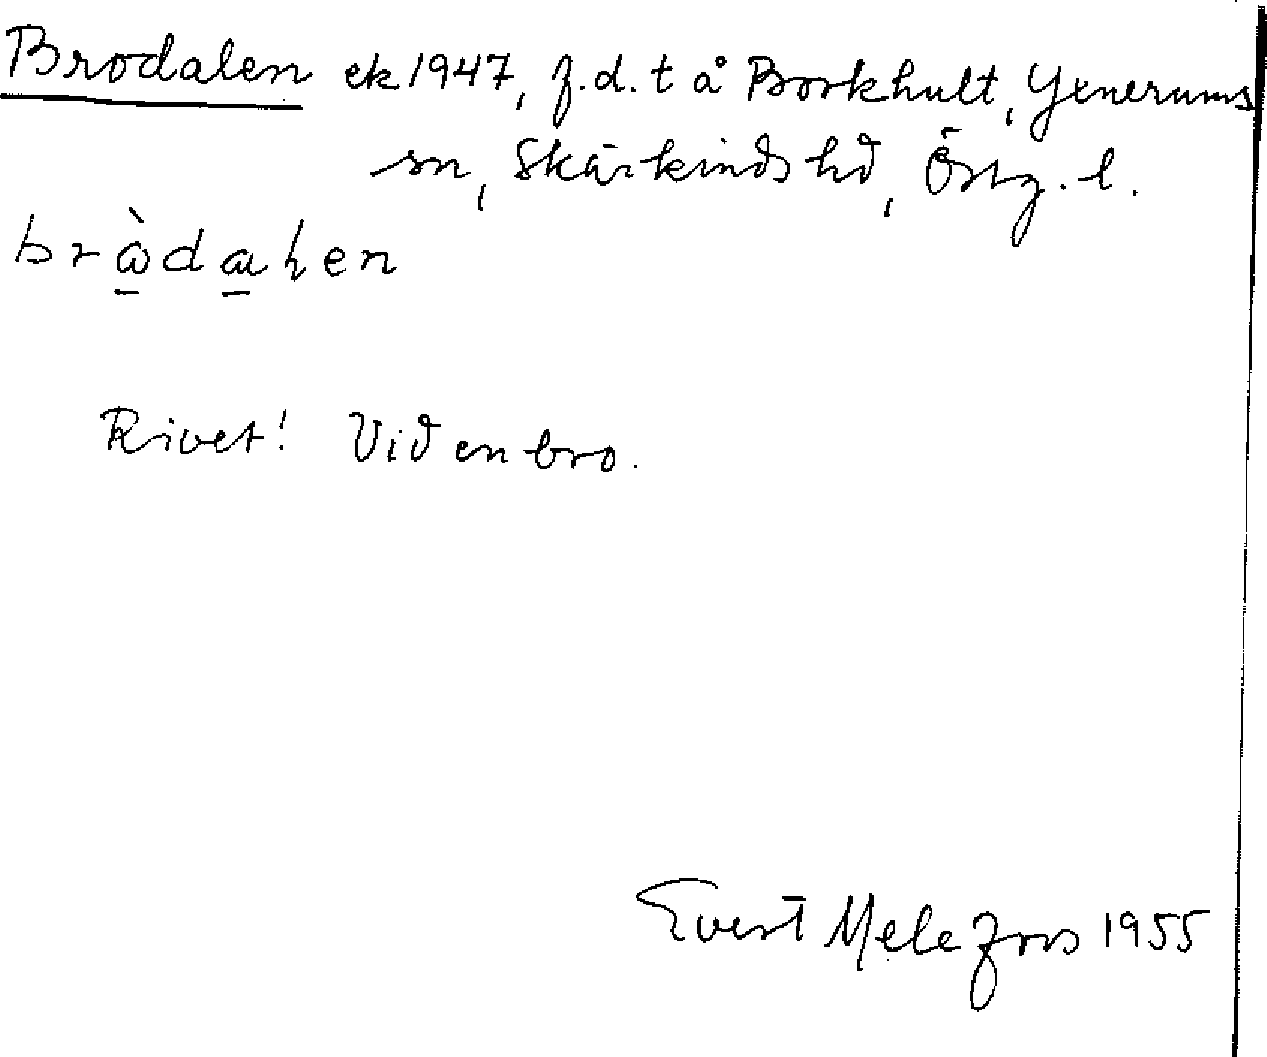 Brodalen ek 1947, f.d. t å Borkhult, Yxnerums
sn, Skärkinds hd, Östg. l.
bròdalen
Rivet! Vid en bro.
Evert Melefors 1955